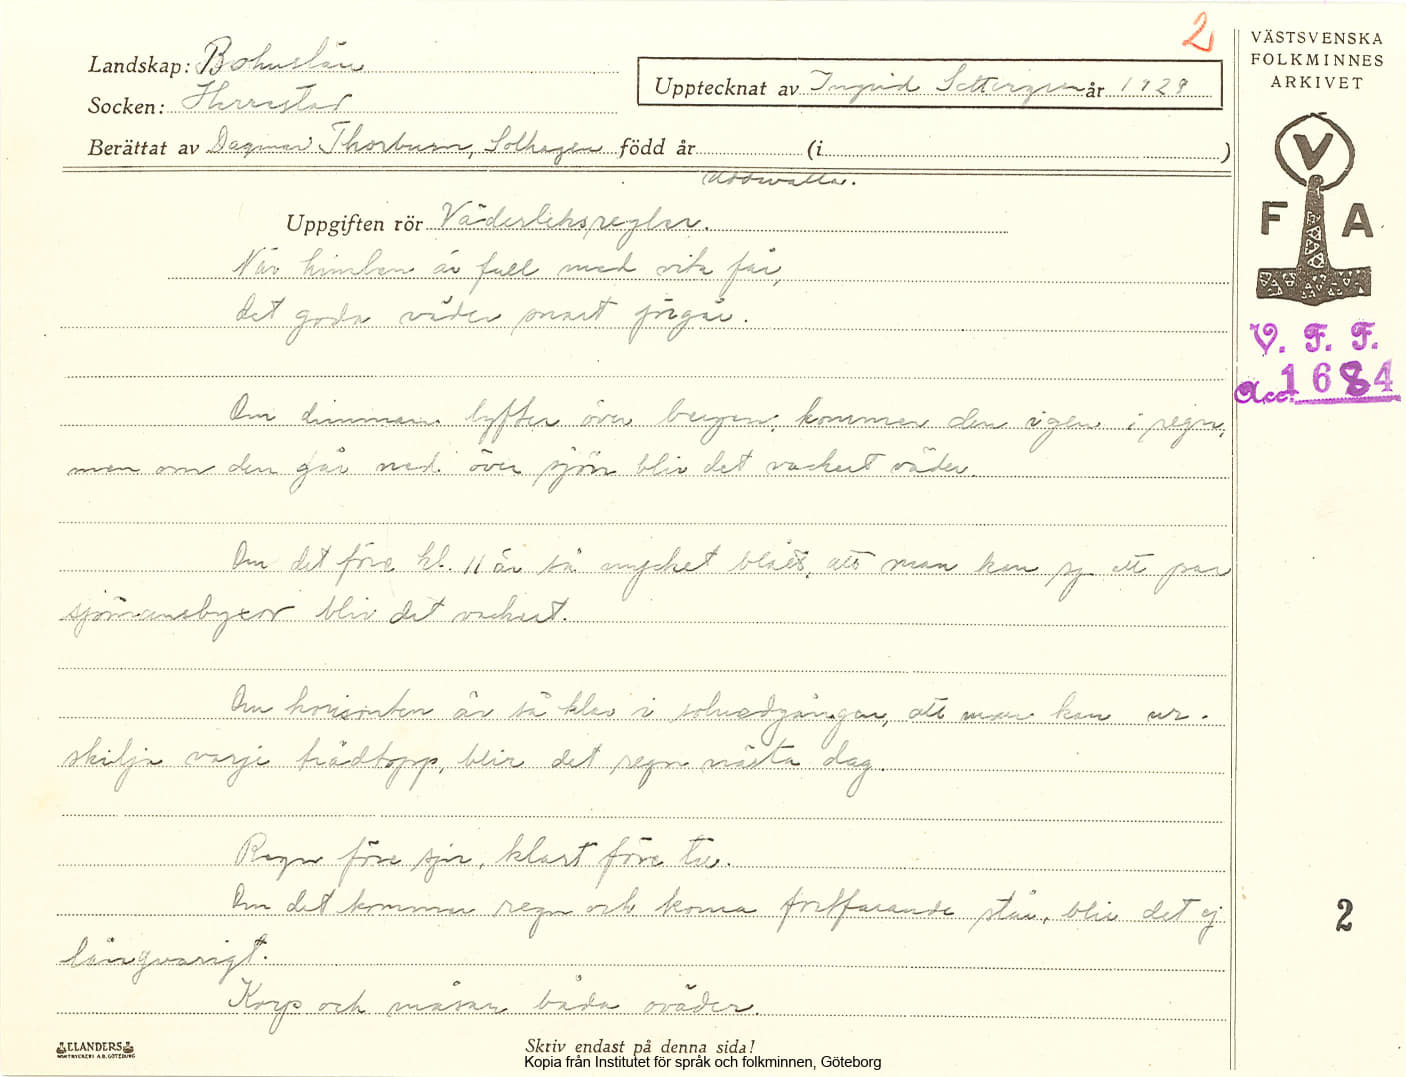 2
VÄSTSVENSKA
FOLKMINNES
ARKIVET
Landskap: Bohuslän
Upptecknat av Ingrid Settergren år 1929
Socken: Herrestad
Berättat av Dagmar Thorburn, Solhagen född år (i )
Uddevalla.
V
F A
Uppgiften rör Väderleksreglar.
När himlen är full med vita får,
det goda väder snart förgår.
V. F. F.
Acc. 1684
Om dimman lyfter över bergen, kommer den igen i regn,
men om den går ned över sjön blir det vackert väder.
Om det före kl. 11 är så mycket blått, att man kan sy ett par
sjömansbyxor blir det vackert.
Om horisonten är så klar i solnedgången, att man kan ur-
skilja varje trädtopp, blir det regn nästa dag.
Regn före sju, klart före tu.
Om det kommer regn och korna fortfarande står, blir det ej
långvarigt.
2
Korp och måsar båda oväder.
ELANDERS
Skriv endast på denna sida!
Kopia från Institutet för språk och folkminnen, Göteborg